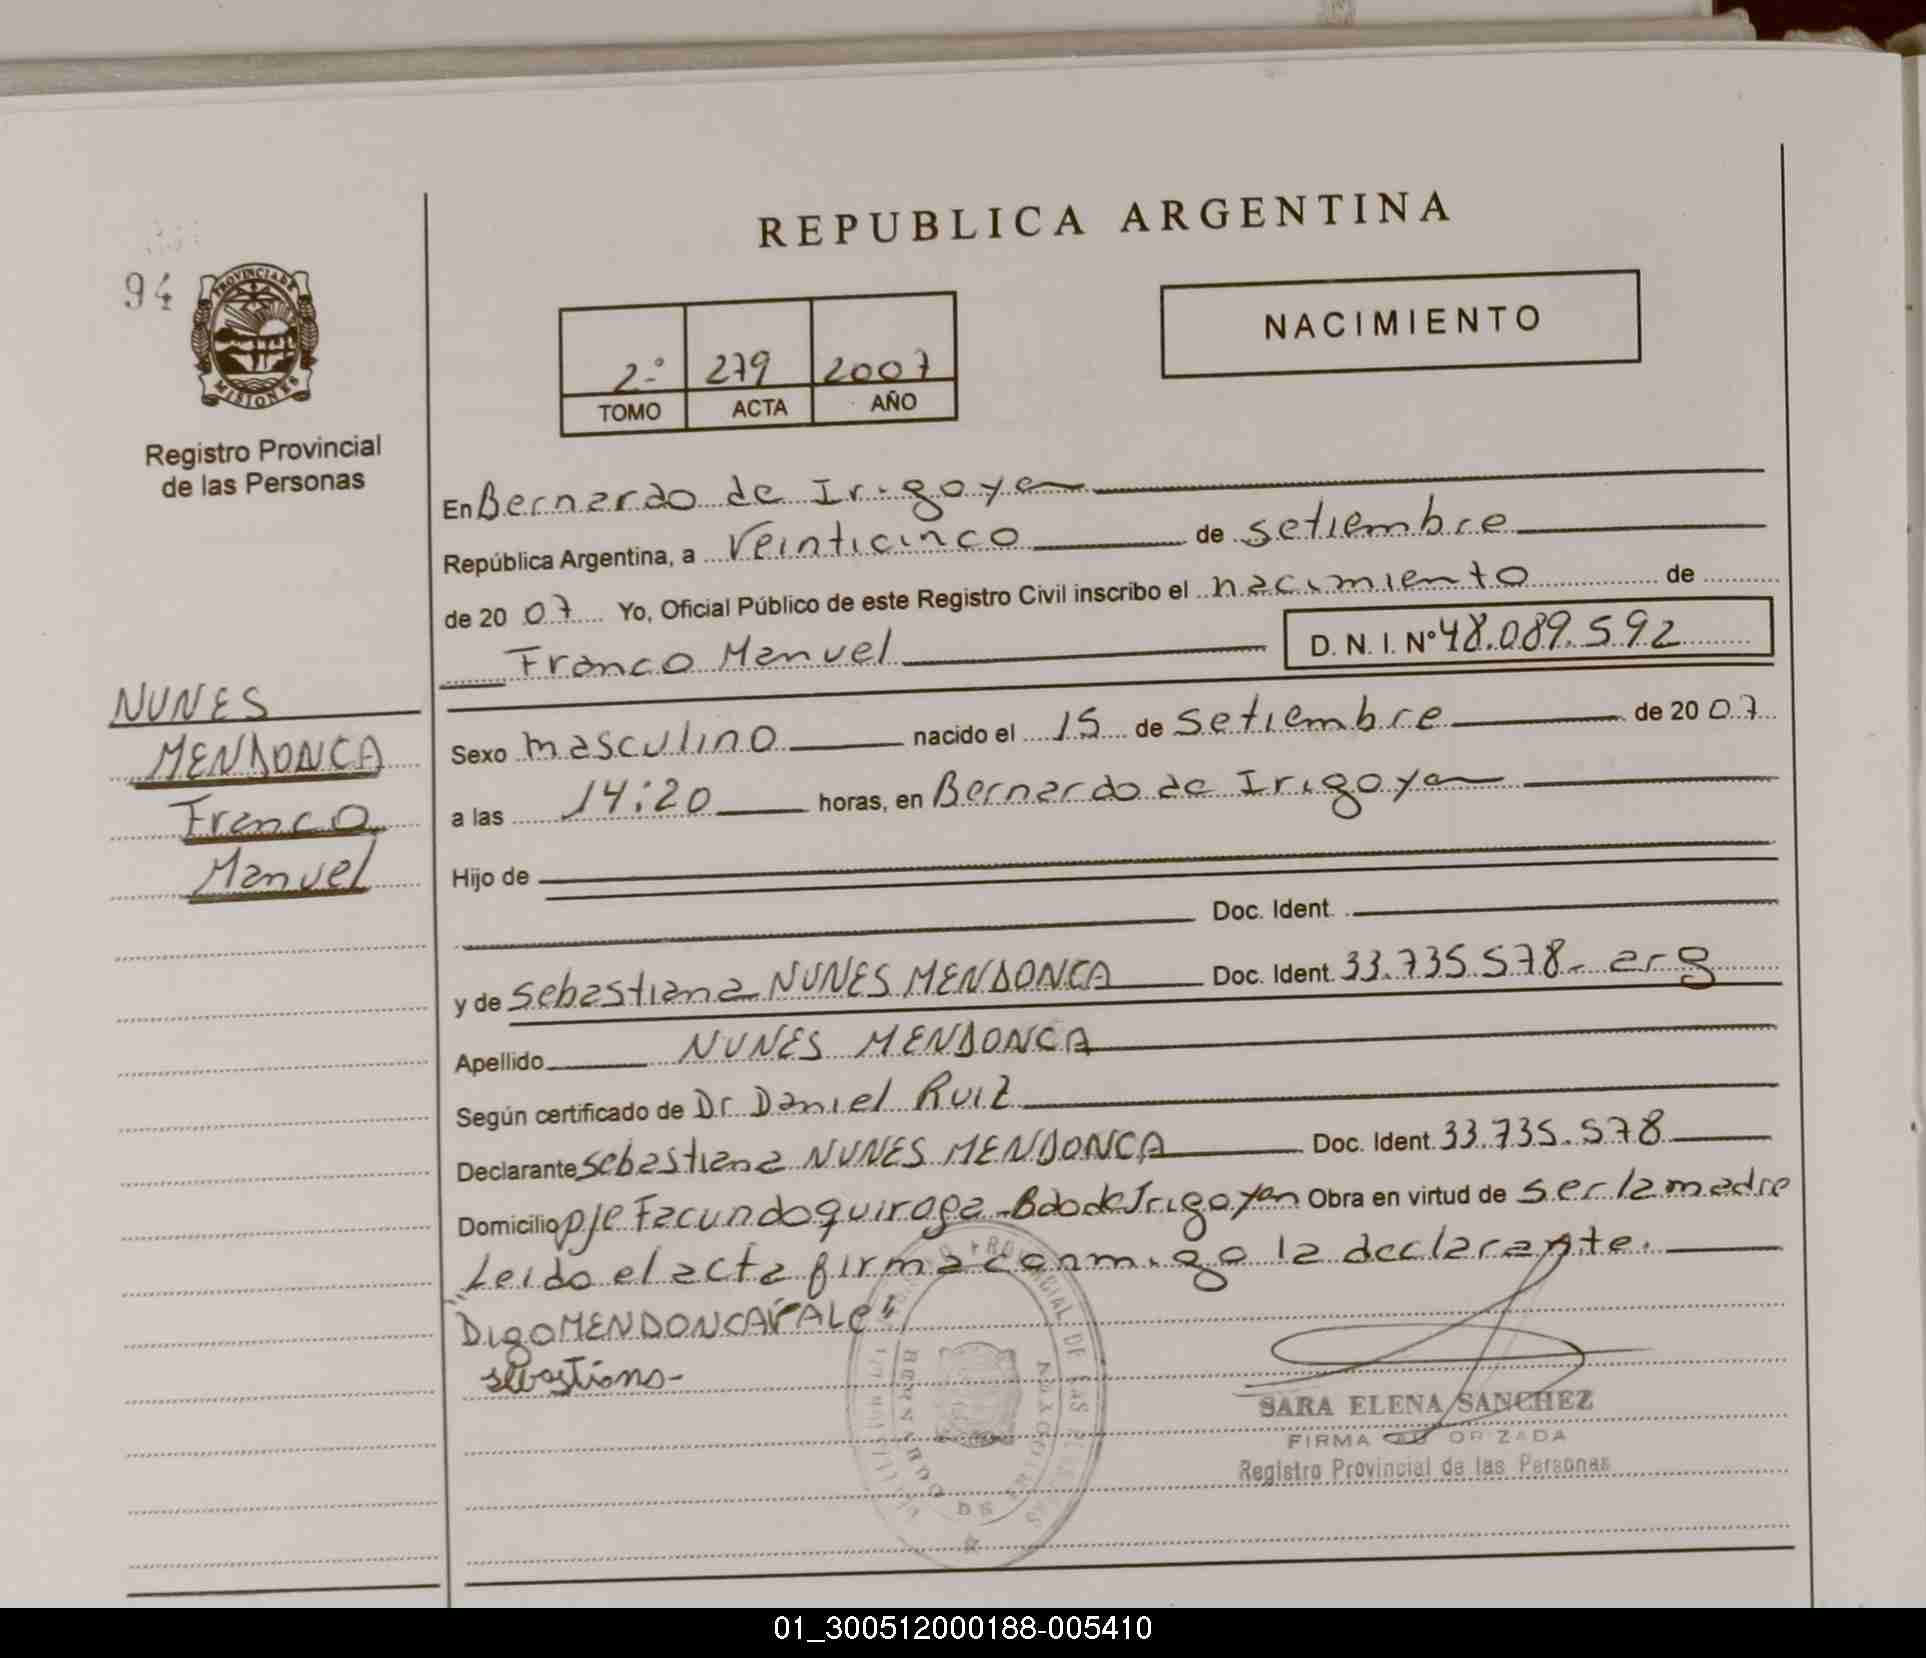 REPUBLICA ARGENTINA
94
PROVINCIA DE
MISIONES
Registro Provincial
de las Personas
NACIMIENTO
2º 279 2007
TOMO ACTA AÑO
En Bernardo de Irigoyen
República Argentina, a Veinticinco de setiembre
de 20 07 Yo, Oficial Público de este Registro Civil inscribo el nacimiento de
Franco Manuel D. N. I. Nº 48.089.592
NUNES
MENDONCA
Franco
Manuel
Sexo masculino nacido el 15 de setiembre de 20 07
a las 14:20 horas, en Bernardo de Irigoyen
Hijo de
Doc. Ident.
y de Sebastiana NUNES MENDONCA Doc. Ident. 33.735.578- arg
Apellido NUNES MENDONCA
Según certificado de Dr Daniel Ruiz
Declarante Sebastiana NUNES MENDONCA Doc. Ident. 33.735.578
Domicilio pje Facundo quiroga -Bdo de Irigoyen Obra en virtud de ser la madre
Leido el acta firma conmigo la declarante.
"Digo MENDONCA VALE"
sebastiana-
SARA ELENA SANCHEZ
FIRMA AUTORIZADA
Registro Provincial de las Personas
01_300512000188-005410